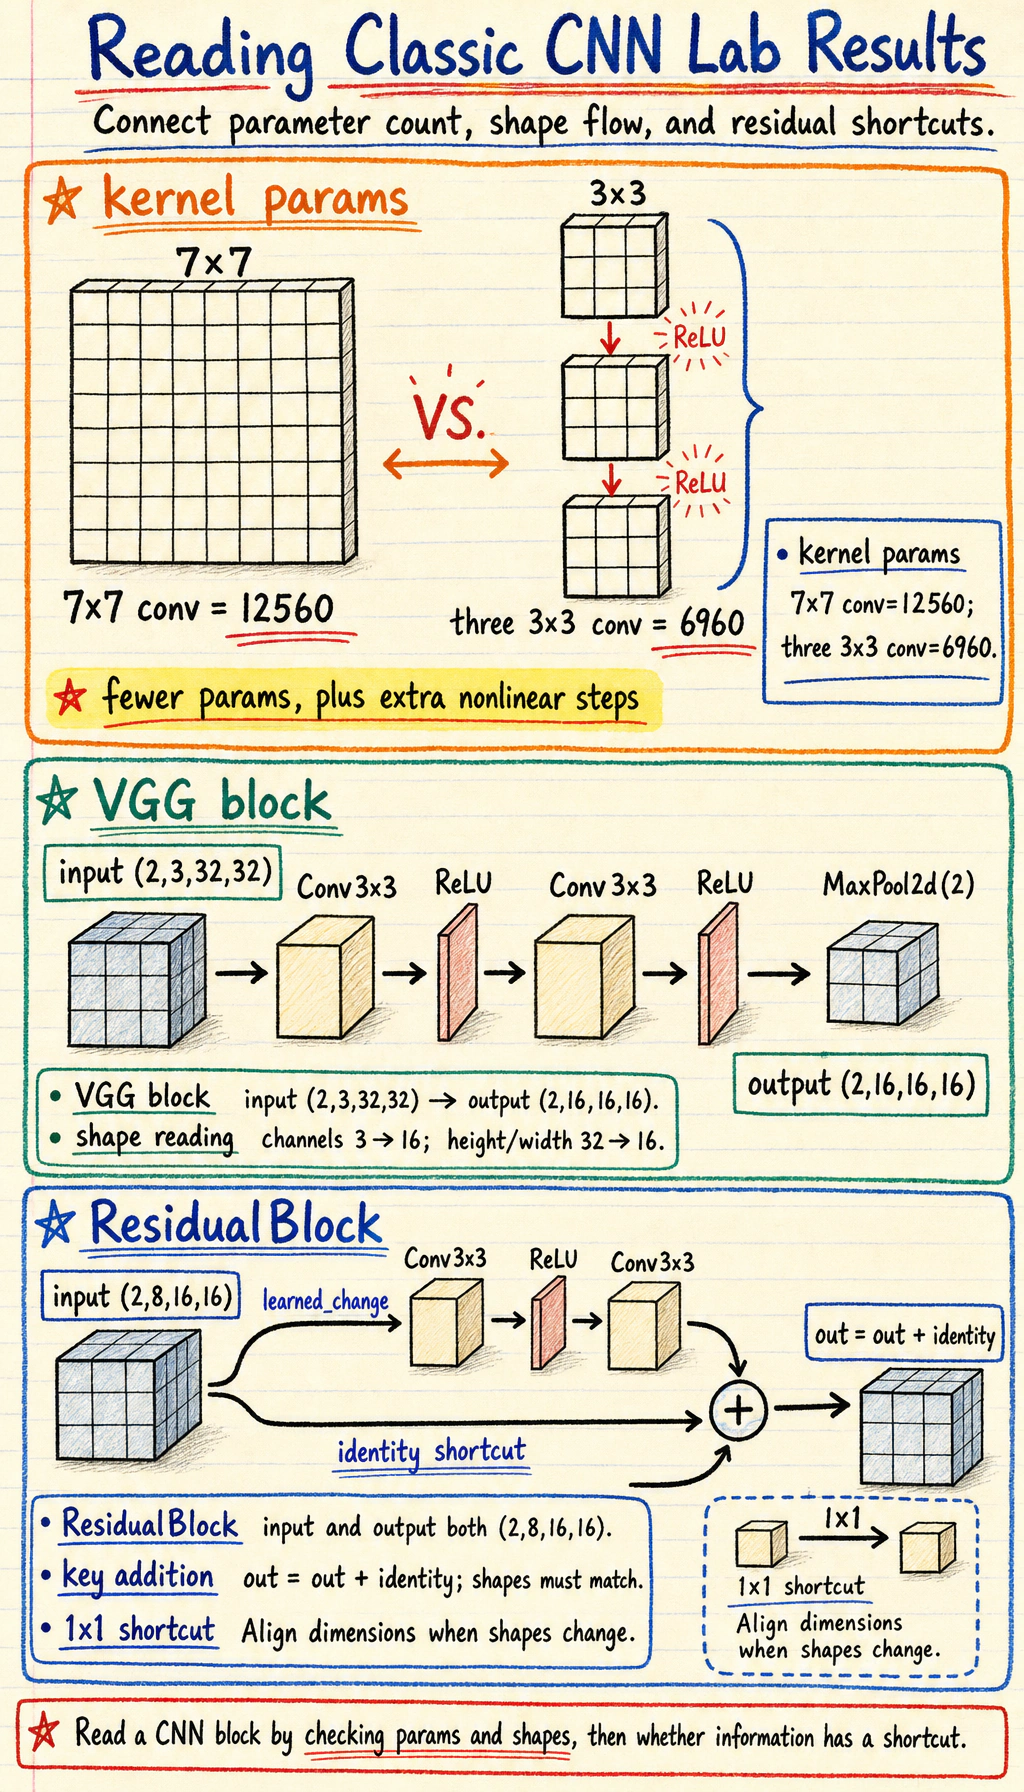 Reading Classic CNN Lab Results
Connect parameter count, shape flow, and residual shortcuts.
kernel params
7×7
3×3
ReLU
VS.
ReLU
7×7 conv = 12560
three 3×3 conv = 6960
• kernel params
7×7 conv=12560;
three 3×3 conv=6960.
fewer params, plus extra nonlinear steps
VGG block
input (2,3,32,32)
Conv3x3
ReLU
Conv3x3
ReLU
MaxPool2d(2)
output (2,16,16,16)
• VGG block input (2,3,32,32) → output (2,16,16,16).
• shape reading channels 3→16; height/width 32→16.
ResidualBlock
input (2,8,16,16)
learned_change
Conv3x3
ReLU
Conv3x3
out = out + identity
+
identity shortcut
• ResidualBlock input and output both (2,8,16,16).
• key addition out = out + identity; shapes must match.
• 1x1 shortcut Align dimensions when shapes change.
1x1
1x1 shortcut
Align dimensions
when shapes change.
Read a CNN block by checking params and shapes, then whether information has a shortcut.